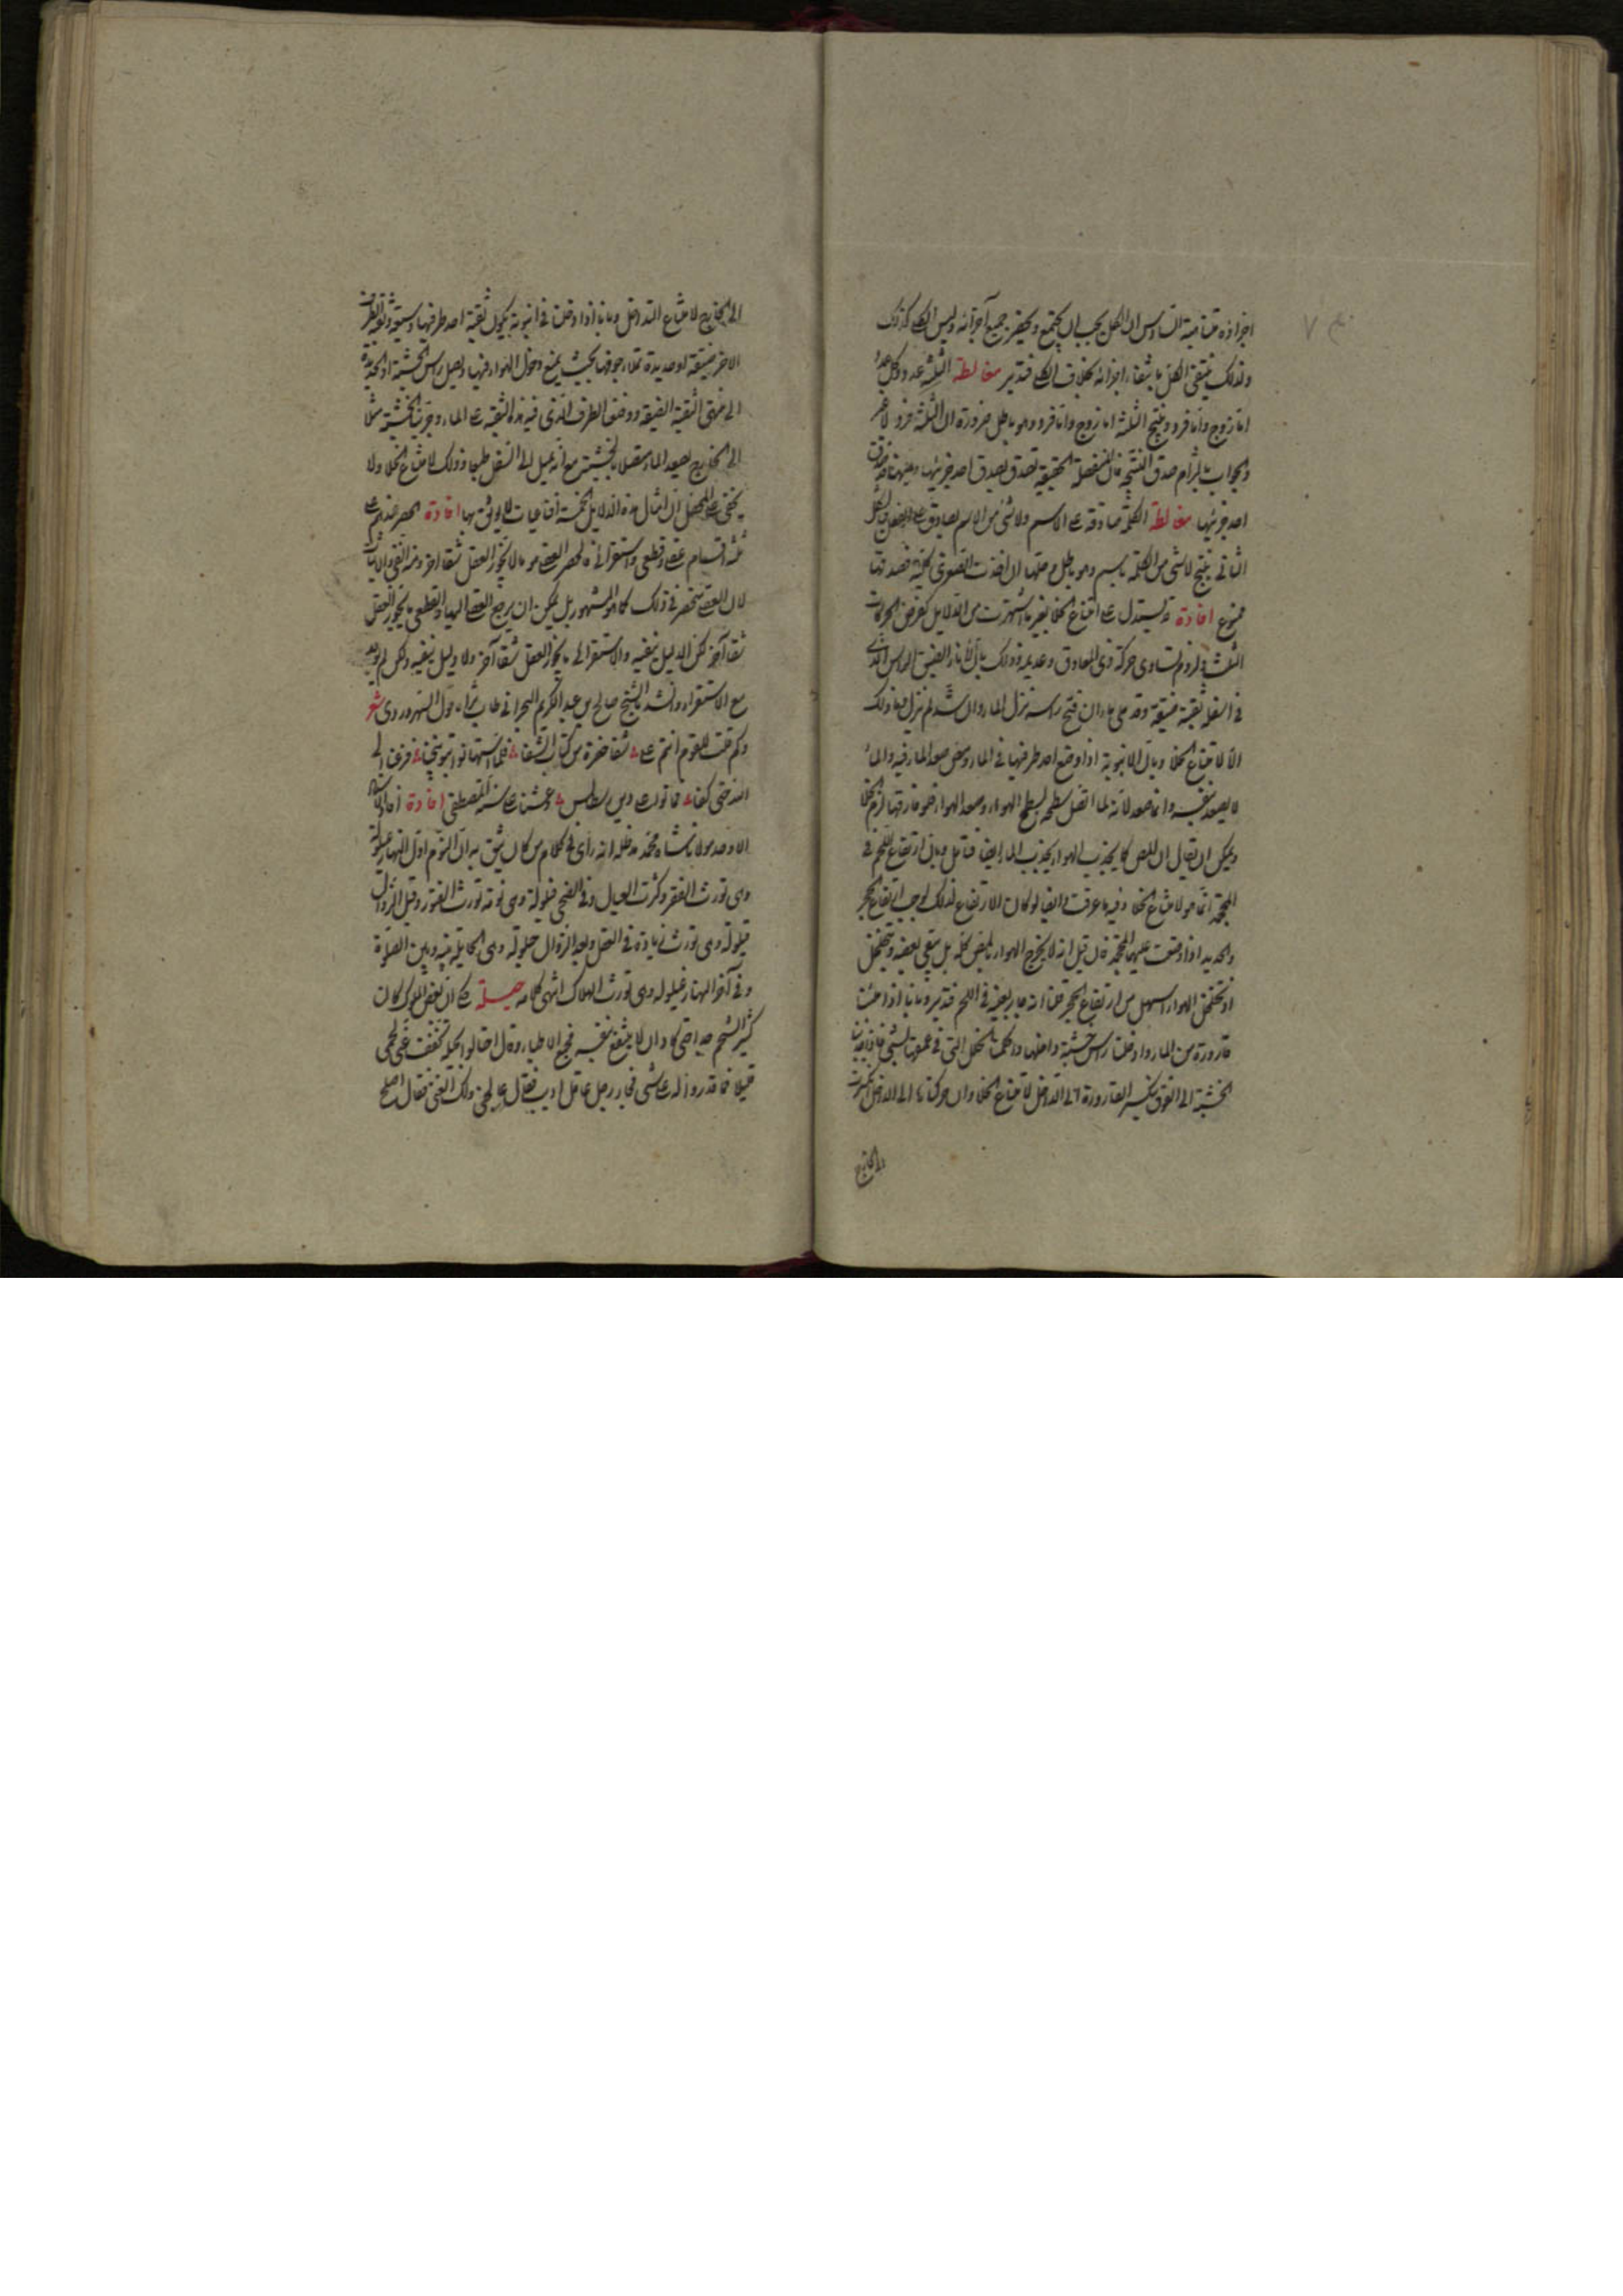 اجزاؤه متناهية السادس ان الكل يجب ان يجتمع ويحضر جميع أجزائه وليس الكلي كذلك
ولذلك ينتفي الكل بانتفاء اجزائه بخلاف الكلي فتدبر مغالطة الثلثة عدد وكل عدد
اما زوج واما فرد وينتج الثلثة اما زوج واما فرد وهو باطل ضرورة ان الثلثة فرد لا غير
والجواب بالتزام صدق النتيجة فان المنفصلة الحقيقية تصدق بصدق احد جزئيها وههنا قد صدق
احد جزئيها مغالطة الكلمة صادقة على الاسم ولا شئ من الاسم بصادق على
الثاني ينتج لا شئ من الكلمة باسم وهو باطل وحلها ان اخذت الصغرى كلية فصدقها
ممنوع افادة قد يستدل على امتناع الخلا بغير ما اشتهرت من الدلايل كفرض الحركات
الثلث ولزوم تساوى حركة ذى المعاوق وعديمه وذلك بان الاناء الضيق الراس الذى
فى اسفله ثقبة ضيقة وقد ملئ ماء ان فتح راسه نزل الماء وان سد لم ينزل فما ذلك
الا لامتناع الخلا وبان الانبوبة اذا وضع احد طرفيها فى الماء ومص صعد الماء فيه والماء
لا يصعد بنفسه وانما صعد لانه لما اتصل سطحه بسطح الهواء وصعد الهواء فلو فارقها لزم الخلا
ويمكن ان يقال ان المص كما يجذب الهواء يجذب الماء ايضا فتامل وبان ارتفاع اللحم فى
المحجمة انما هو لامتناع الخلا وفيه ما عرفت وايضا لو كان الارتفاع لذلك لوجب ارتفاع الحجر
والحديد اذا وضعت عليهما المحجمة فان قيل انه لا يخرج الهواء بالمص كله بل يبقى بعضه ويتخلخل
او تخلخل الهواء اسهل من ارتفاع الحجر قلنا انه جار بعينه فى اللحم فتدبر وبانا اذا ملئنا
قارورة من الماء وادخلنا راس خشبة داخلها واحكمنا الخلل التى فى عنقها بشئ فاذا جذبنا
الخشبة الى الفوق تكسر القارورة الى الداخل لامتناع الخلا وان حركناها الى الداخل انكسرت
الى الخارج
الى الخارج لامتناع التداخل وبانا اذا ادخلنا فى انبوبة يكون ثقبة احد طرفيها وسيعة وثقبة الطرف
الاخر ضيقة او حديدة تملاء جوفها بحيث يمنع دخول الهواء فيها ويصل راس الخشبة او الحديدة
الى منتهى الثقبة الضيقة ووضع الطرف الذى فيه هذه الثقبة على الماء وجر بالخشبة مثلا
الى الخارج يصعد الماء متصلا بالخشبة مع انه يميل الى السفل طبعا وذلك لامتناع الخلا ولا
يخفى على المحصل ان امثال هذه الدلايل الخمسة اقناعيات لا يوثق بها افادة الحصر عندهم على
ثلثة اقسام عقلى وقطعى واستقرائى فالحصر العقلى هو ما لا يجوز العقل شقا اخر وهذا النفى والاثبات
لان العقلى ينحصر فى ذلك كما هو المشهور بل يمكن ان يرجع العقلى اليها والقطعى ما يجوز العقل
شقا آخر لكن الدليل ينفيه والاستقرائى ما يجوز العقل شقا آخر ولا دليل ينفيه ولكن لم يوجد
مع الاستقراء وانشد الشيخ صالح بن عبد الكريم البحرانى طاب ثراه قول السهروردى شعر
وكم قلت للقوم انتم على شفا حفرة من كتاب الشفا فلما استهانوا بتوبيخنا فرغنا الى
الله حتى كفا فماتوا على دين رسطالس وعشنا على سنة المصطفى افادة افاد
الاوحد مولانا شاه محمد مد ظله انه رأى فى كلام من كان يثق به ان النوم اول النهار عيلولة
وهى تورث الفقر وكثرت العيال وفى الضحى فيلولة وهى نومة تورث الفتور وقبل الزوال
قيلولة وهى تورث زيادة فى العقل وبعد الزوال حيلولة وهى الحايلة بينه وبين الصلوة
وفى آخر النهار غيلولة وهى تورث الهلاك انتهى كلامه حيلة حكى ان بعض الملوك كان
كثير الشحم جدا حتى كاد ان لا ينتفع بنفسه فجمع الاطباء وقال احتالوا بحيلة تخفف عنى لحمى
قليلا فما قدروا له على شئ فجاء رجل عاقل اديب فقال عالجنى ولك الغنى فقال اصلح